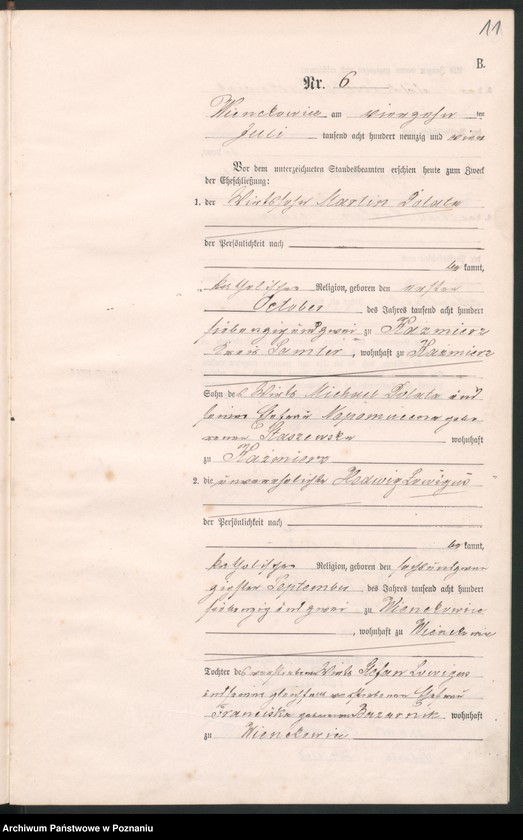 11
B.
Nr. 6
Wienckowice am vierzehn ten
Juli tausend acht hundert neunzig und vier
Vor dem unterzeichneten Standesbeamten erschien heute zum Zweck
der Eheschließung:
1. der Wirtssohn Martin Dolata
der Persönlichkeit nach
be kannt,
katholischer Religion, geboren den ersten
October des Jahres tausend acht hundert
siebenzig und zwei zu Kazmierz
Kreis Samter, wohnhaft zu Kazmierz
Sohn des Wirts Michael Dolata und
seiner Ehefrau Nepomucena gebo
renen Staszewska wohnhaft
zu Kazmierz
2. die unverehelichte Hedwig Ludwigus
der Persönlichkeit nach
be kannt,
katholischer Religion, geboren den
September des Jahres tausend acht hundert
siebenzig und zwei zu Wienckowice
, wohnhaft zu Wienckowice
Tochter des verstorbenen Wirts Stefan
und seiner gleichfalls verstorbenen Ehefrau
Franciska geborenen Bazarnik wohnhaft
zu Wienckowice
Archiwum Państwowe w Poznaniu